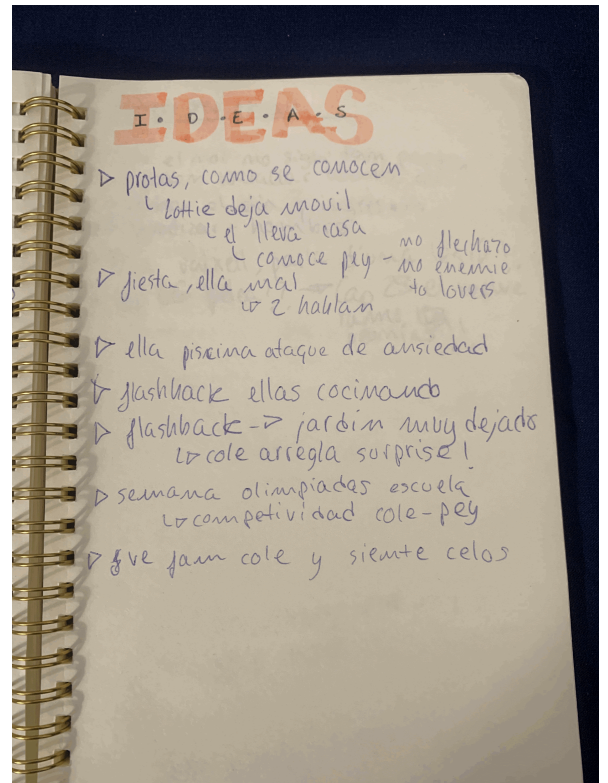 IDEAS
I · D · E · A · S
▷ protas, como se conocen
↳ lottie deja movil
↳ el lleva casa
↳ conoce pey - no flechazo
- no enemie to lovers
▷ fiesta, ella mal
↳ 2 hablan
▷ ella piscina ataque de ansiedad
▷ flashback ellas cocinando
▷ flashback -> jardin muy dejado
↳ cole arregla surprise!
▷ semana olimpiadas escuela
↳ competividad cole-pey
▷ ve fam cole y siente celos